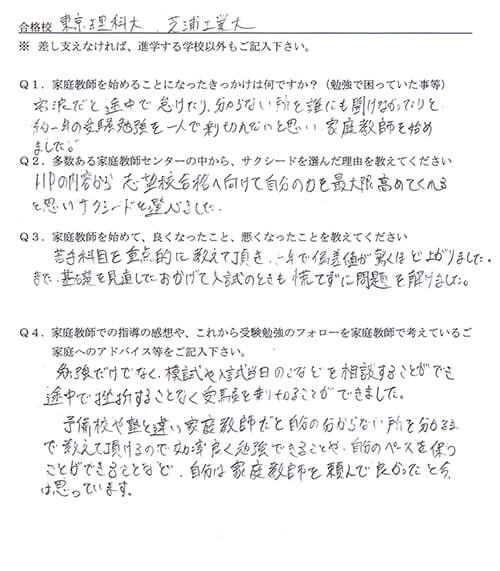 合格校 東京理科大、芝浦工業大
※ 差し支えなければ、進学する学校以外もご記入下さい。
Q1．家庭教師を始めることになったきっかけは何ですか？（勉強で困っていた事等）
浪だと途中で怠けたり、分からない所を誰にも聞けなかったりと
約一年の受験勉強を一人で乗り切れないと思い、家庭教師を始め
ました。
Q2．多数ある家庭教師センターの中から、サクシードを選んだ理由を教えてください
HPの内容から 志望校合格へ向けて自分の力を最大限高めてくれる
と思いサクシードを選びました。
Q3．家庭教師を始めて、良くなったこと、悪くなったことを教えてください
苦手科目を重点的に教えて頂き、一年で偏差値が驚くほど上がりました。
また、基礎を見直したおかげで入試のときも慌てずに問題を解けました。
Q4．家庭教師での指導の感想や、これから受験勉強のフォローを家庭教師で考えているご
家庭へのアドバイス等をご記入下さい。
勉強だけでなく、模試や入試当日のことなどを相談することができ
途中で挫折することなく受験を乗り切ることができました。
予備校や塾と違い家庭教師だと自分の分からない所を分かるま
で教えて頂けるので効率良く勉強できることや、自分のペースを保つ
ことができることなど、自分は家庭教師を頼んで良かったと今
は思っています。